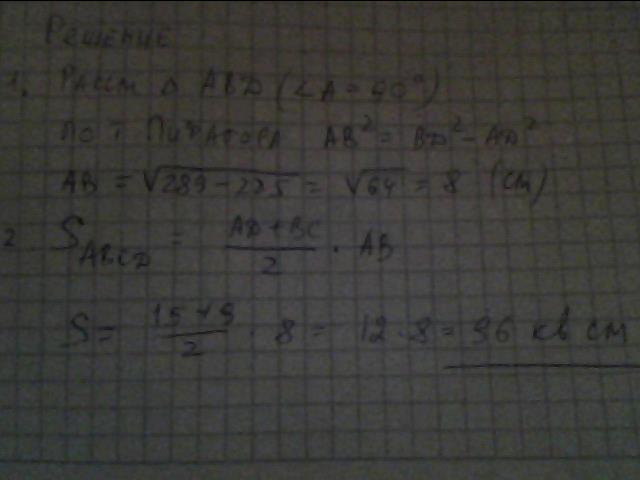 Решение
1. Рассм Δ ABD (∠A = 90°)
по т Пифагора AB² = BD² - AD²
AB = √289-225 = √64 = 8 (см)
2 S_ABCD = (AD + BC)/2 · AB
S = (15+9)/2 · 8 = 12 · 8 = 96 кв см